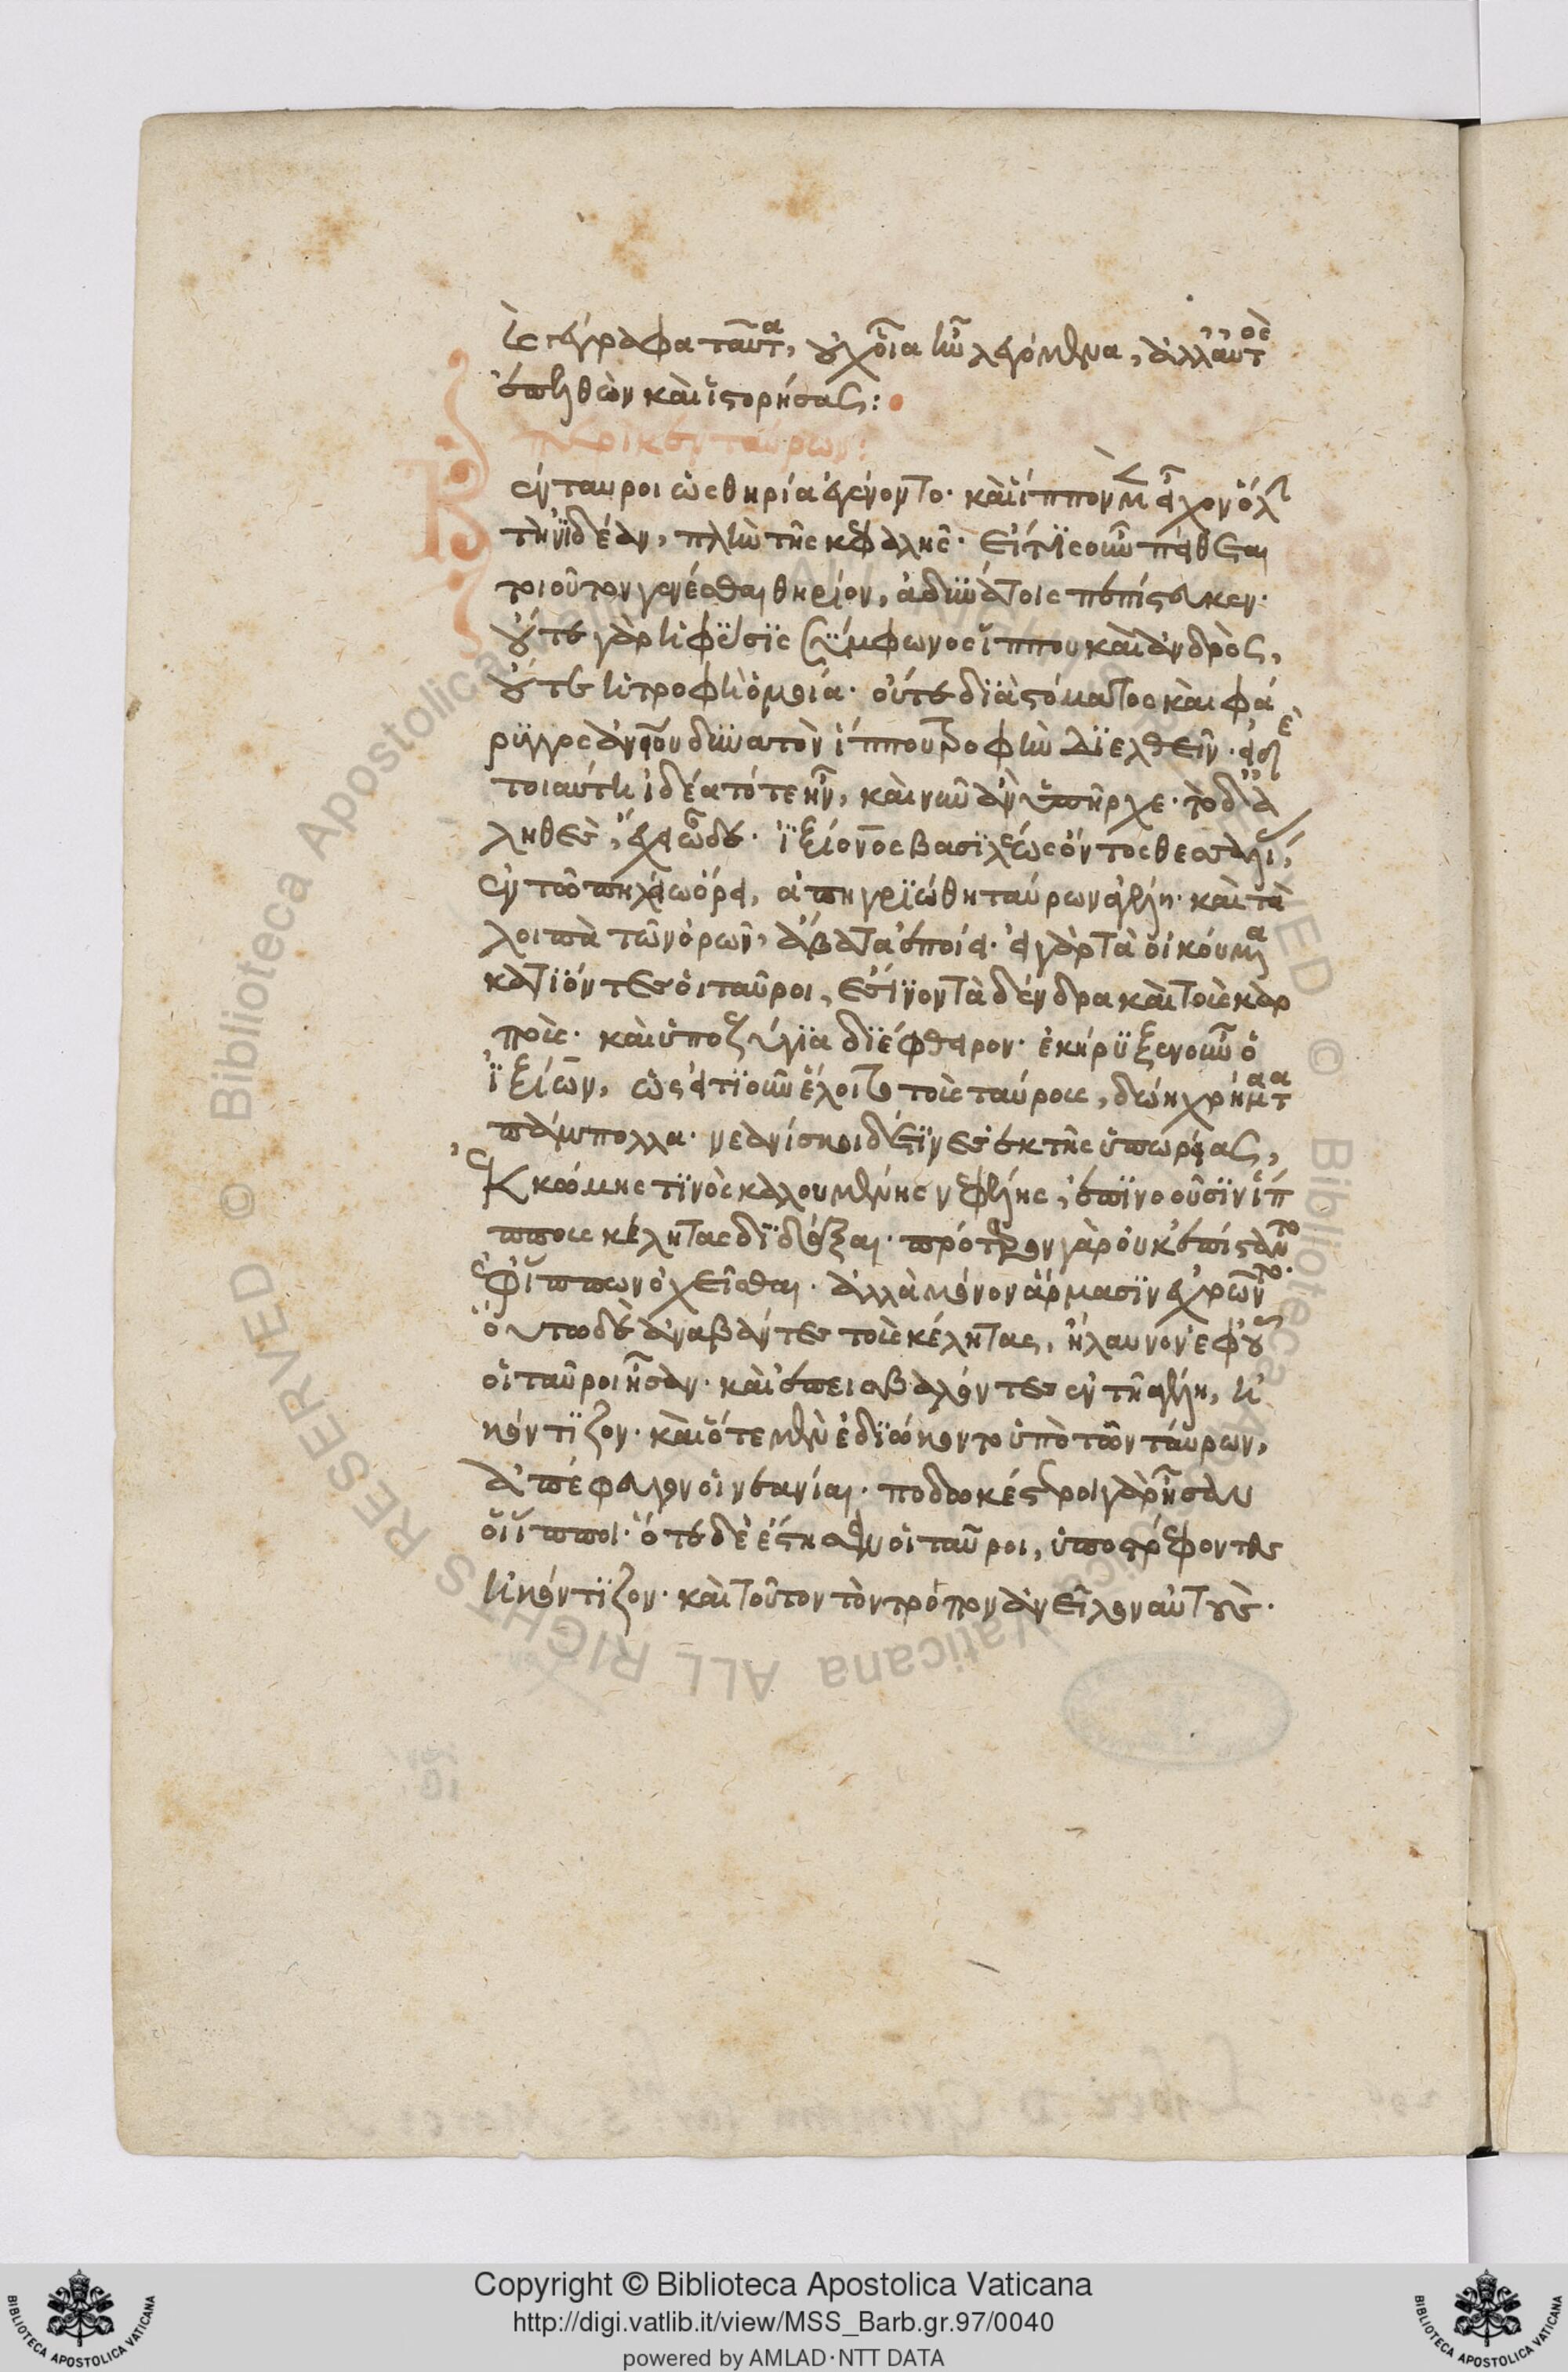 γέγραφα ταῦτα, οὐχ οἷα ἦν λεγόμενα, ἀλλ' αὐτὸς
ἐπελθὼν καὶ ἱστορήσας:
περὶ κενταύρων:
Κένταυροι ὡς θηρία ἐγένοντο. καὶ ἵππων μὲν εἶχον ὅλην
τὴν ἰδέαν, πλὴν τῆς κεφαλῆς. εἴ τις οὖν πείθεται
τοιοῦτον γενέσθαι θηρίον, ἀδυνάτοις πεπίστευκεν.
οὔτε γὰρ ἡ φύσις σύμφωνος ἵππου καὶ ἀνδρὸς,
οὔτε ἡ τροφὴ ὁμοία. οὔτε διὰ στόματος καὶ φά
ρυγγος ἀνθρώπου δυνατὸν ἵππου τροφὴν διελθεῖν. εἰ δὲ
τοιαύτη ἰδέα τότε ἦν, καὶ νῦν ἂν ὑπῆρχε. τὸ δ' ἀ
ληθὲς, ἔχει ὧδε. ἰξίονος βασιλέως ὄντος θεσσαλίας,
ἐν τῶ πηλίω ὄρει, ἀπηγριώθη ταύρων ἀγέλη. καὶ τὰ
λοιπὰ τῶν ὀρῶν, ἄβατα ἐποίει. εἰ γὰρ τὰ οἰκούμενα
κατιόντες οἱ ταῦροι, ἐσίνοντα δένδρα καὶ τοὺς καρ
ποὺς. καὶ ὑποζύγια διέφθειρον. ἐκήρυξεν οὖν ὁ
ἰξίων, ὡς εἴ τις οὖν ἕλοιτο τοὺς ταύρους, δώη χρήματα
πάμπολλα. νεανίσκοι δέ τινες ἐκ τῆς ὑπωρείας,
ἐκ κώμης τινὸς καλουμένης νεφέλης, ἐπινοοῦσιν ἵπ
ππους κέλητας διδάξαι. πρότερον γὰρ οὐκ ἐπίσταντο
ἐφ' ἵππων ὀχεῖσθαι. ἀλλὰ μόνον ἅρμασιν ἐχρῶντο.
οὕτω δὲ ἀναβάντες τοὺς κέλητας, ἤλαυνον ἐφ' οὗ
οἱ ταῦροι ἦσαν. καὶ ἐπεισβαλόντες ἐν τῇ ἀγέλη, ἠ
κόντιζον. καὶ ὅτε μὲν ἐδιώκοντο ὑπὸ τῶν ταύρων,
ἀπέφευγον οἱ νεανίαι. ποδωκέστεροι γὰρ ἦσαν
οἱ ἵπποι. ὅτε δὲ ἔστησαν οἱ ταῦροι, ὑποστρέφοντες
ἠκόντιζον. καὶ τοῦτον τὸν τρόπον ἀνεῖλον αὐτοὺς.
Copyright © Biblioteca Apostolica Vaticana
http://digi.vatlib.it/view/MSS_Barb.gr.97/0040
powered by AMLAD·NTT DATA